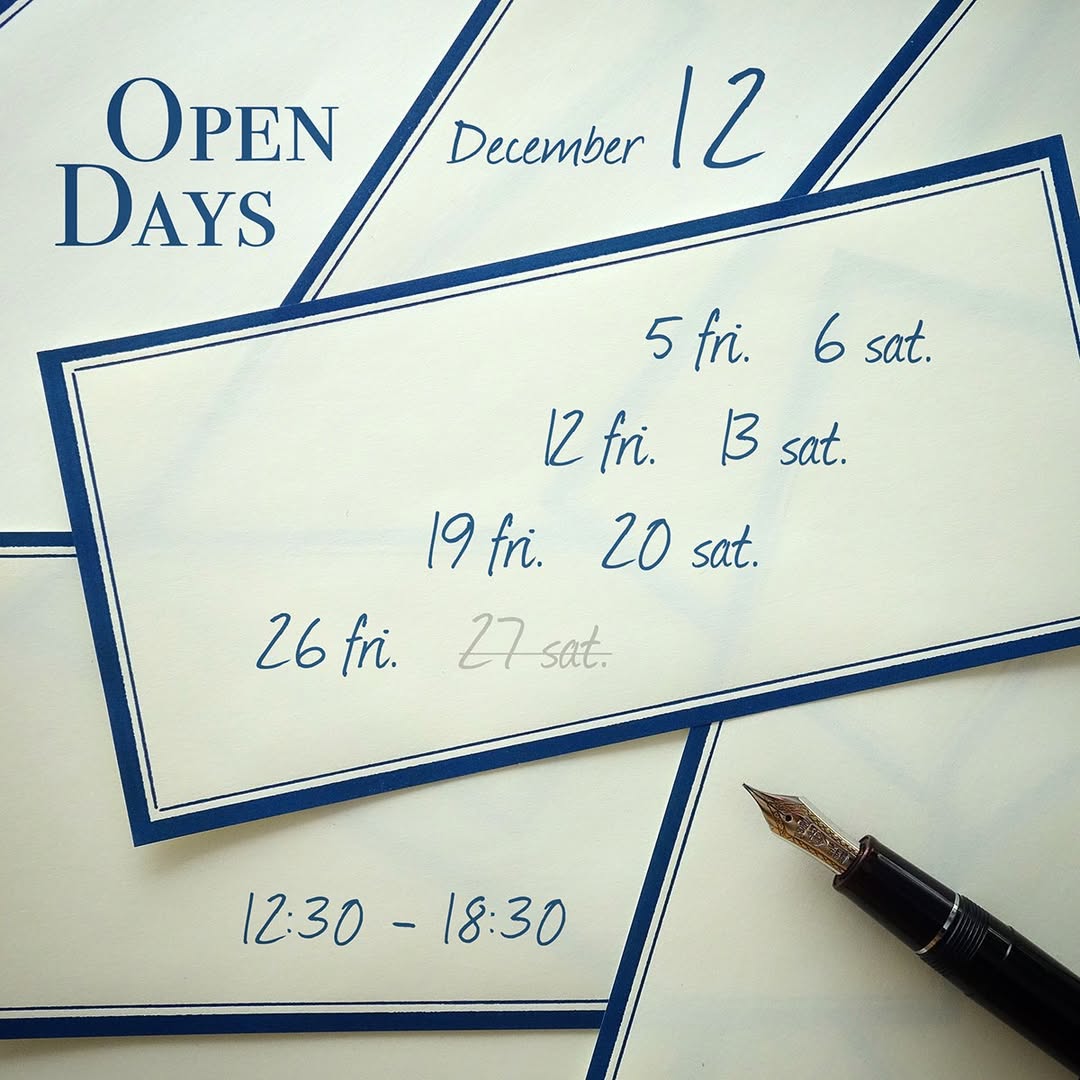 OPEN
DAYS
December 12
5 fri. 6 sat.
12 fri. 13 sat.
19 fri. 20 sat.
26 fri. 27 sat.
12:30 – 18:30